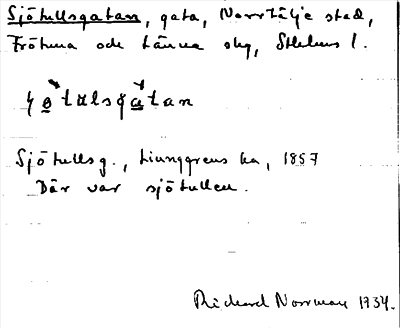 Sjötullsgatan, gata, Norrtälje stad,
Frötuna och Länna slg, Sthlms l.
Sjötullsg., Ljunggrens ka, 1857
Där var sjötullen.
Richard Norrman 1934.